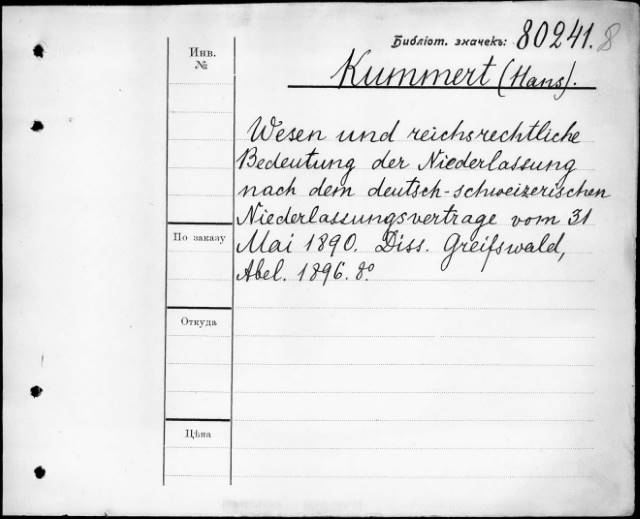 Библіот. значекъ: 80241. 8
Инв. №
Kummert (Hans).
Wesen und reichsrechtliche
Bedeutung der Niederlassung
nach dem deutsch-schweizerischen
Niederlassungsvertrage vom 31
По заказу
Mai 1890. Diss. Greifswald,
Abel. 1896. 8°.
Откуда
Цѣна